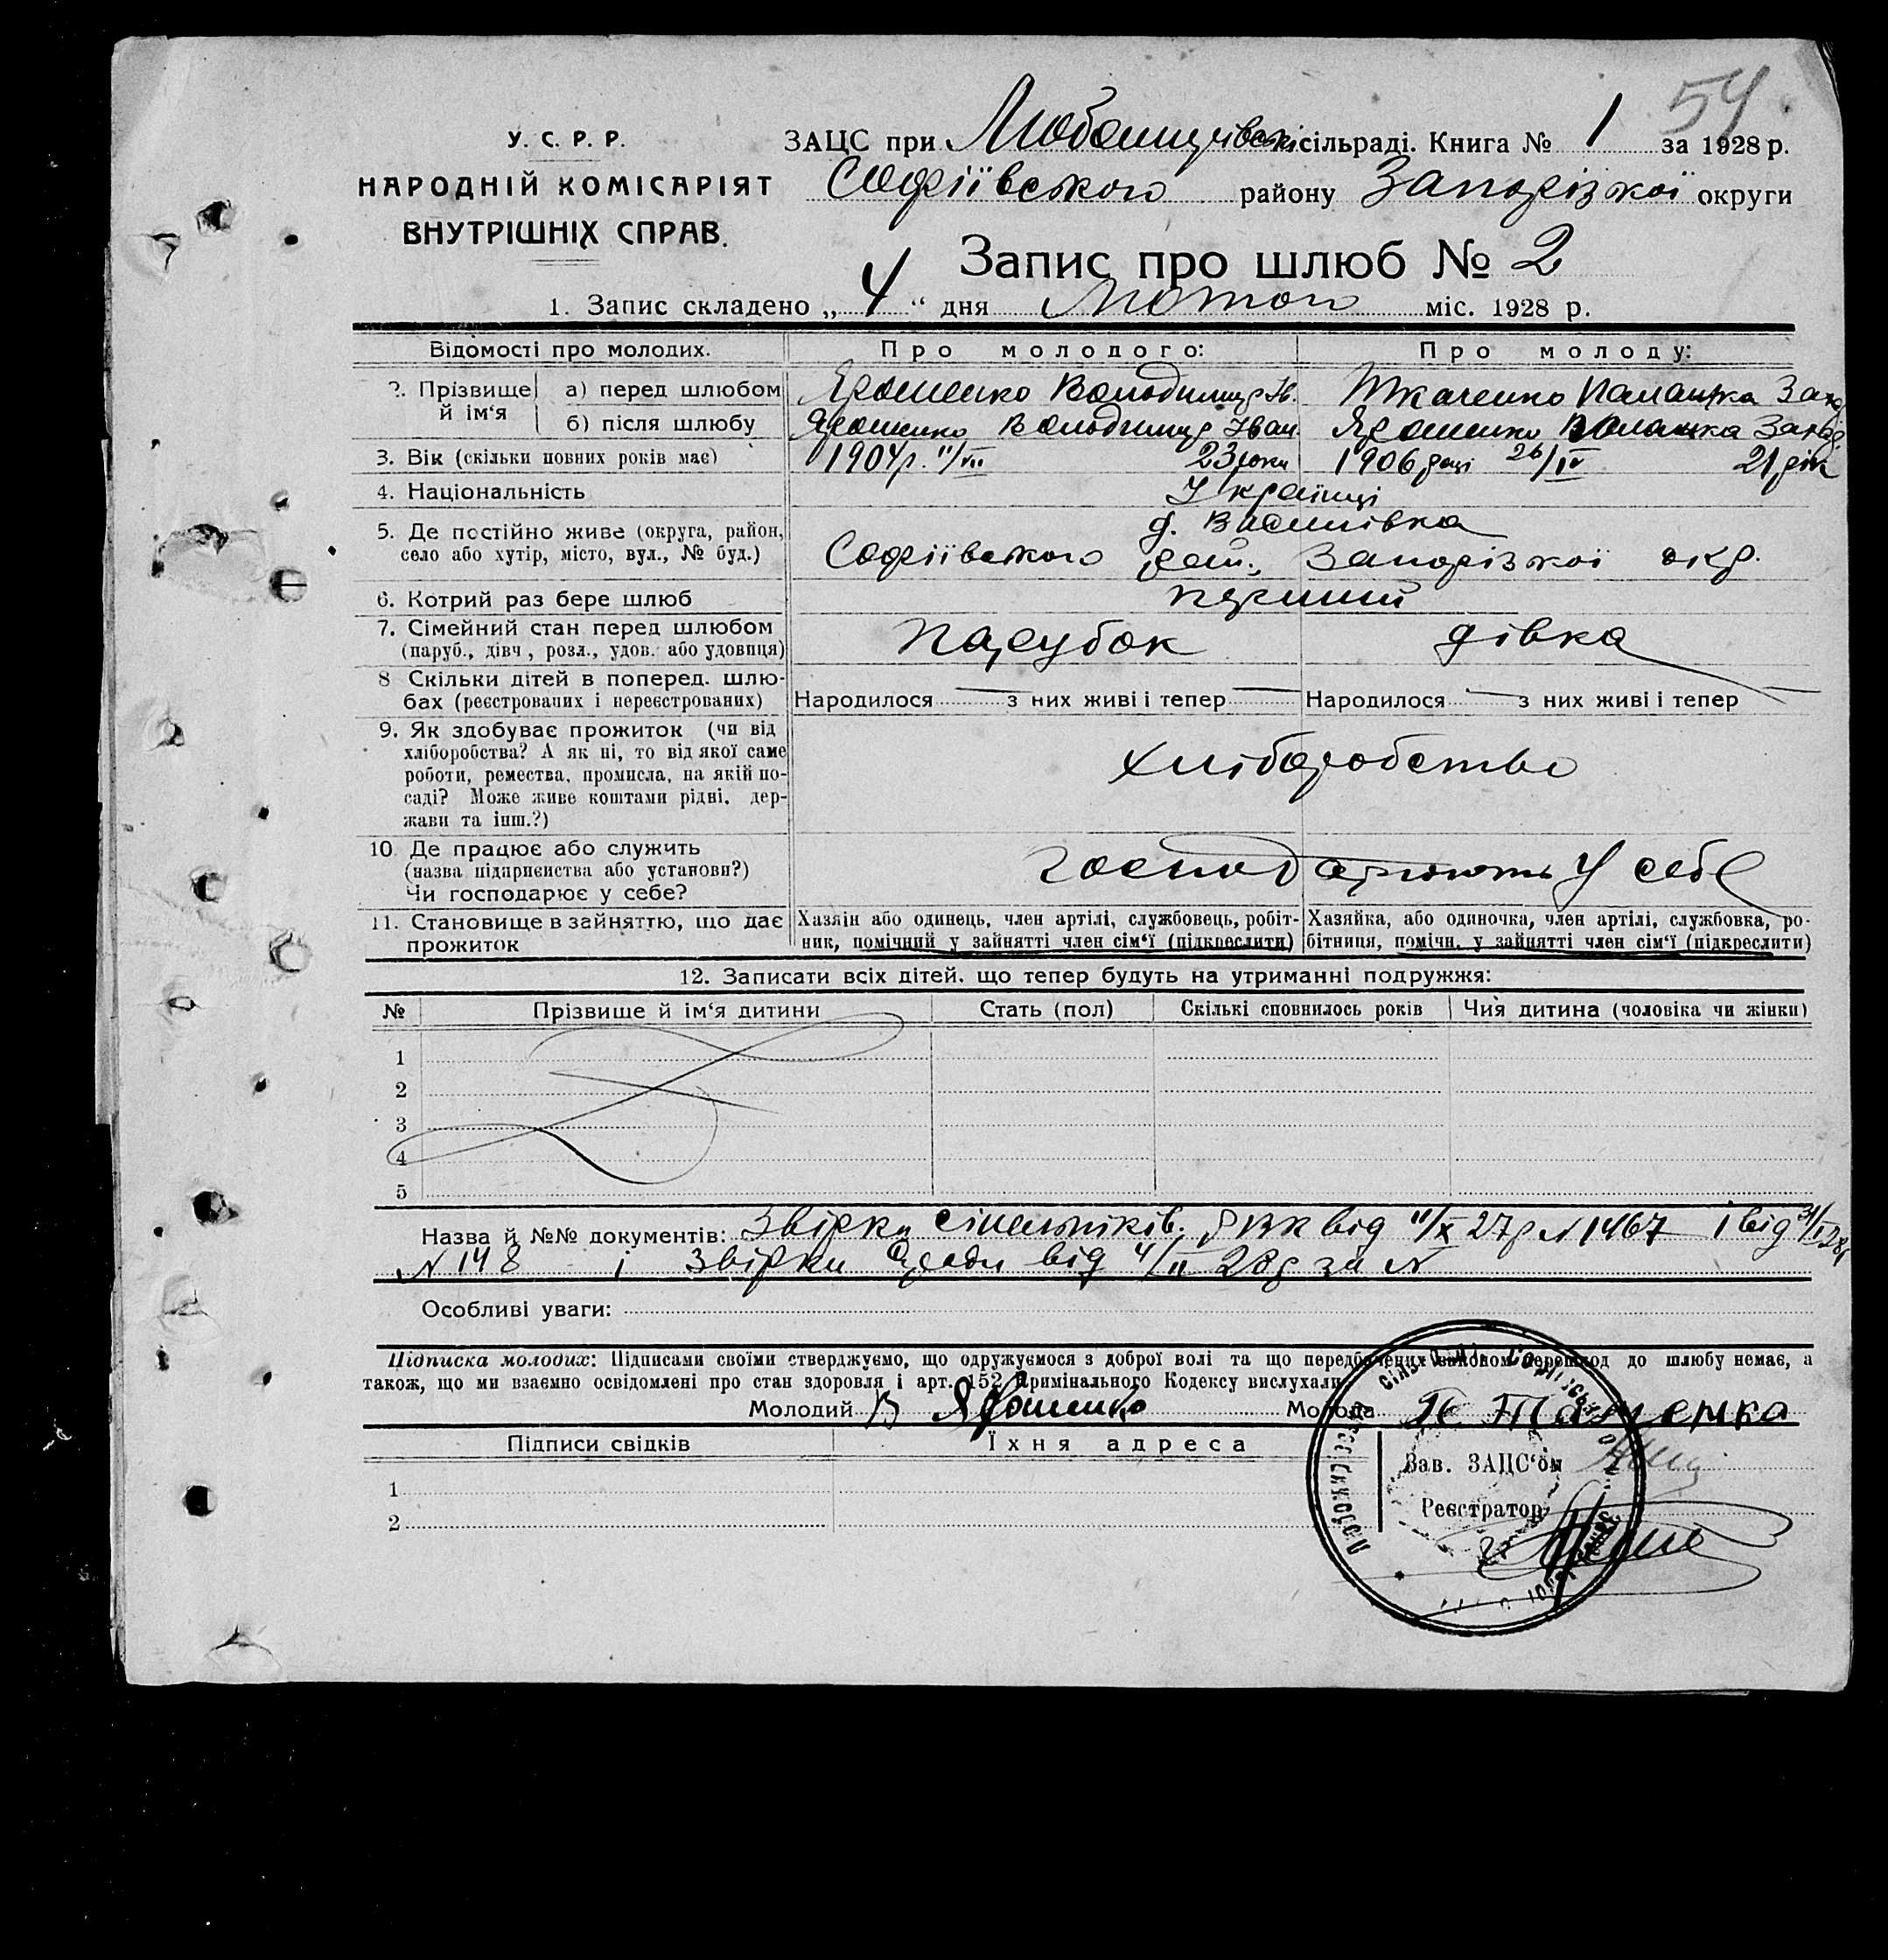 54
У. С. Р. Р.
НАРОДНІЙ КОМІСАРІЯТ
ВНУТРІШНІХ СПРАВ.
ЗАЦС при сільраді. Книга № 1 за 1928 р.
Софіївського району Запорізької округи
Запис про шлюб № 2
1. Запис складено „ 4 “ дня Лютого міс. 1928 р.
Відомості про молодих. Про молодого: Про молоду:
2. Прізвище й ім‘я а) перед шлюбом Ярошенко Володимир Ів. Ткаченко Палашка Зах
б) після шлюбу Ярошенко Володимир Іван. Ярошенко Палашка
3. Вік (скільки повних років має) 1904 р. 11/VII 23 роки 1906 році 26/IV 21 рік
4. Національність Українці
5. Де постійно живе (округа, район, село або хутір, місто, вул., № буд.) д. Василівка
Софіївського рай., Запорізької окр.
6. Котрий раз бере шлюб перший
7. Сімейний стан перед шлюбом (паруб., дівч., розл., удов. або удовиця) парубок дівка
8 Скільки дітей в поперед. шлюбах (реєстрованих і нереєстрованих) Народилося з них живі і тепер Народилося з них живі і тепер
9. Як здобуває прожиток (чи від
хліборобства? А як ні, то від якої саме
роботи, ремества, промисла, на якій по-
саді? Може живе коштами рідні, дер-
жави та інш.?)
хліборобство
10. Де працює або служить
(назва підприємства або установи?)
Чи господарює у себе?
господарюють у себе
11. Становище в зайняттю, що дає
прожиток
Хазяїн або одинець, член артілі, службовець, робіт-
ник, помічний у зайнятті член сім‘ї (підкреслити)
Хазяйка, або одиночка, член артілі, службовка, ро-
бітниця, помічн. у зайнятті член сім‘ї (підкреслити)
12. Записати всіх дітей, що тепер будуть на утриманні подружжя:
№ Прізвище й ім‘я дитини Стать (пол) Скількі сповнилось років Чия дитина (чоловіка чи жінки)
1
2
3
4
5
Назва й №№ документів: Звірки РВК від 11/X 27 р N 1467 і від 31/I 28р
N 148 і Звірки від 4/II 28р за N
Особливі уваги:
Підписка молодих: Підписами своїми стверджуємо, що одружуємося з доброї волі та що передбачених законом перешкод до шлюбу немає, а
також, що ми взаємно освідомлені про стан здоровля і арт. 152 Кримінального Кодексу вислухали
Молодий В Ярошенко Молода
Підписи свідків Їхня адреса
1
2
Зав. ЗАЦС‘ом
Реєстратор